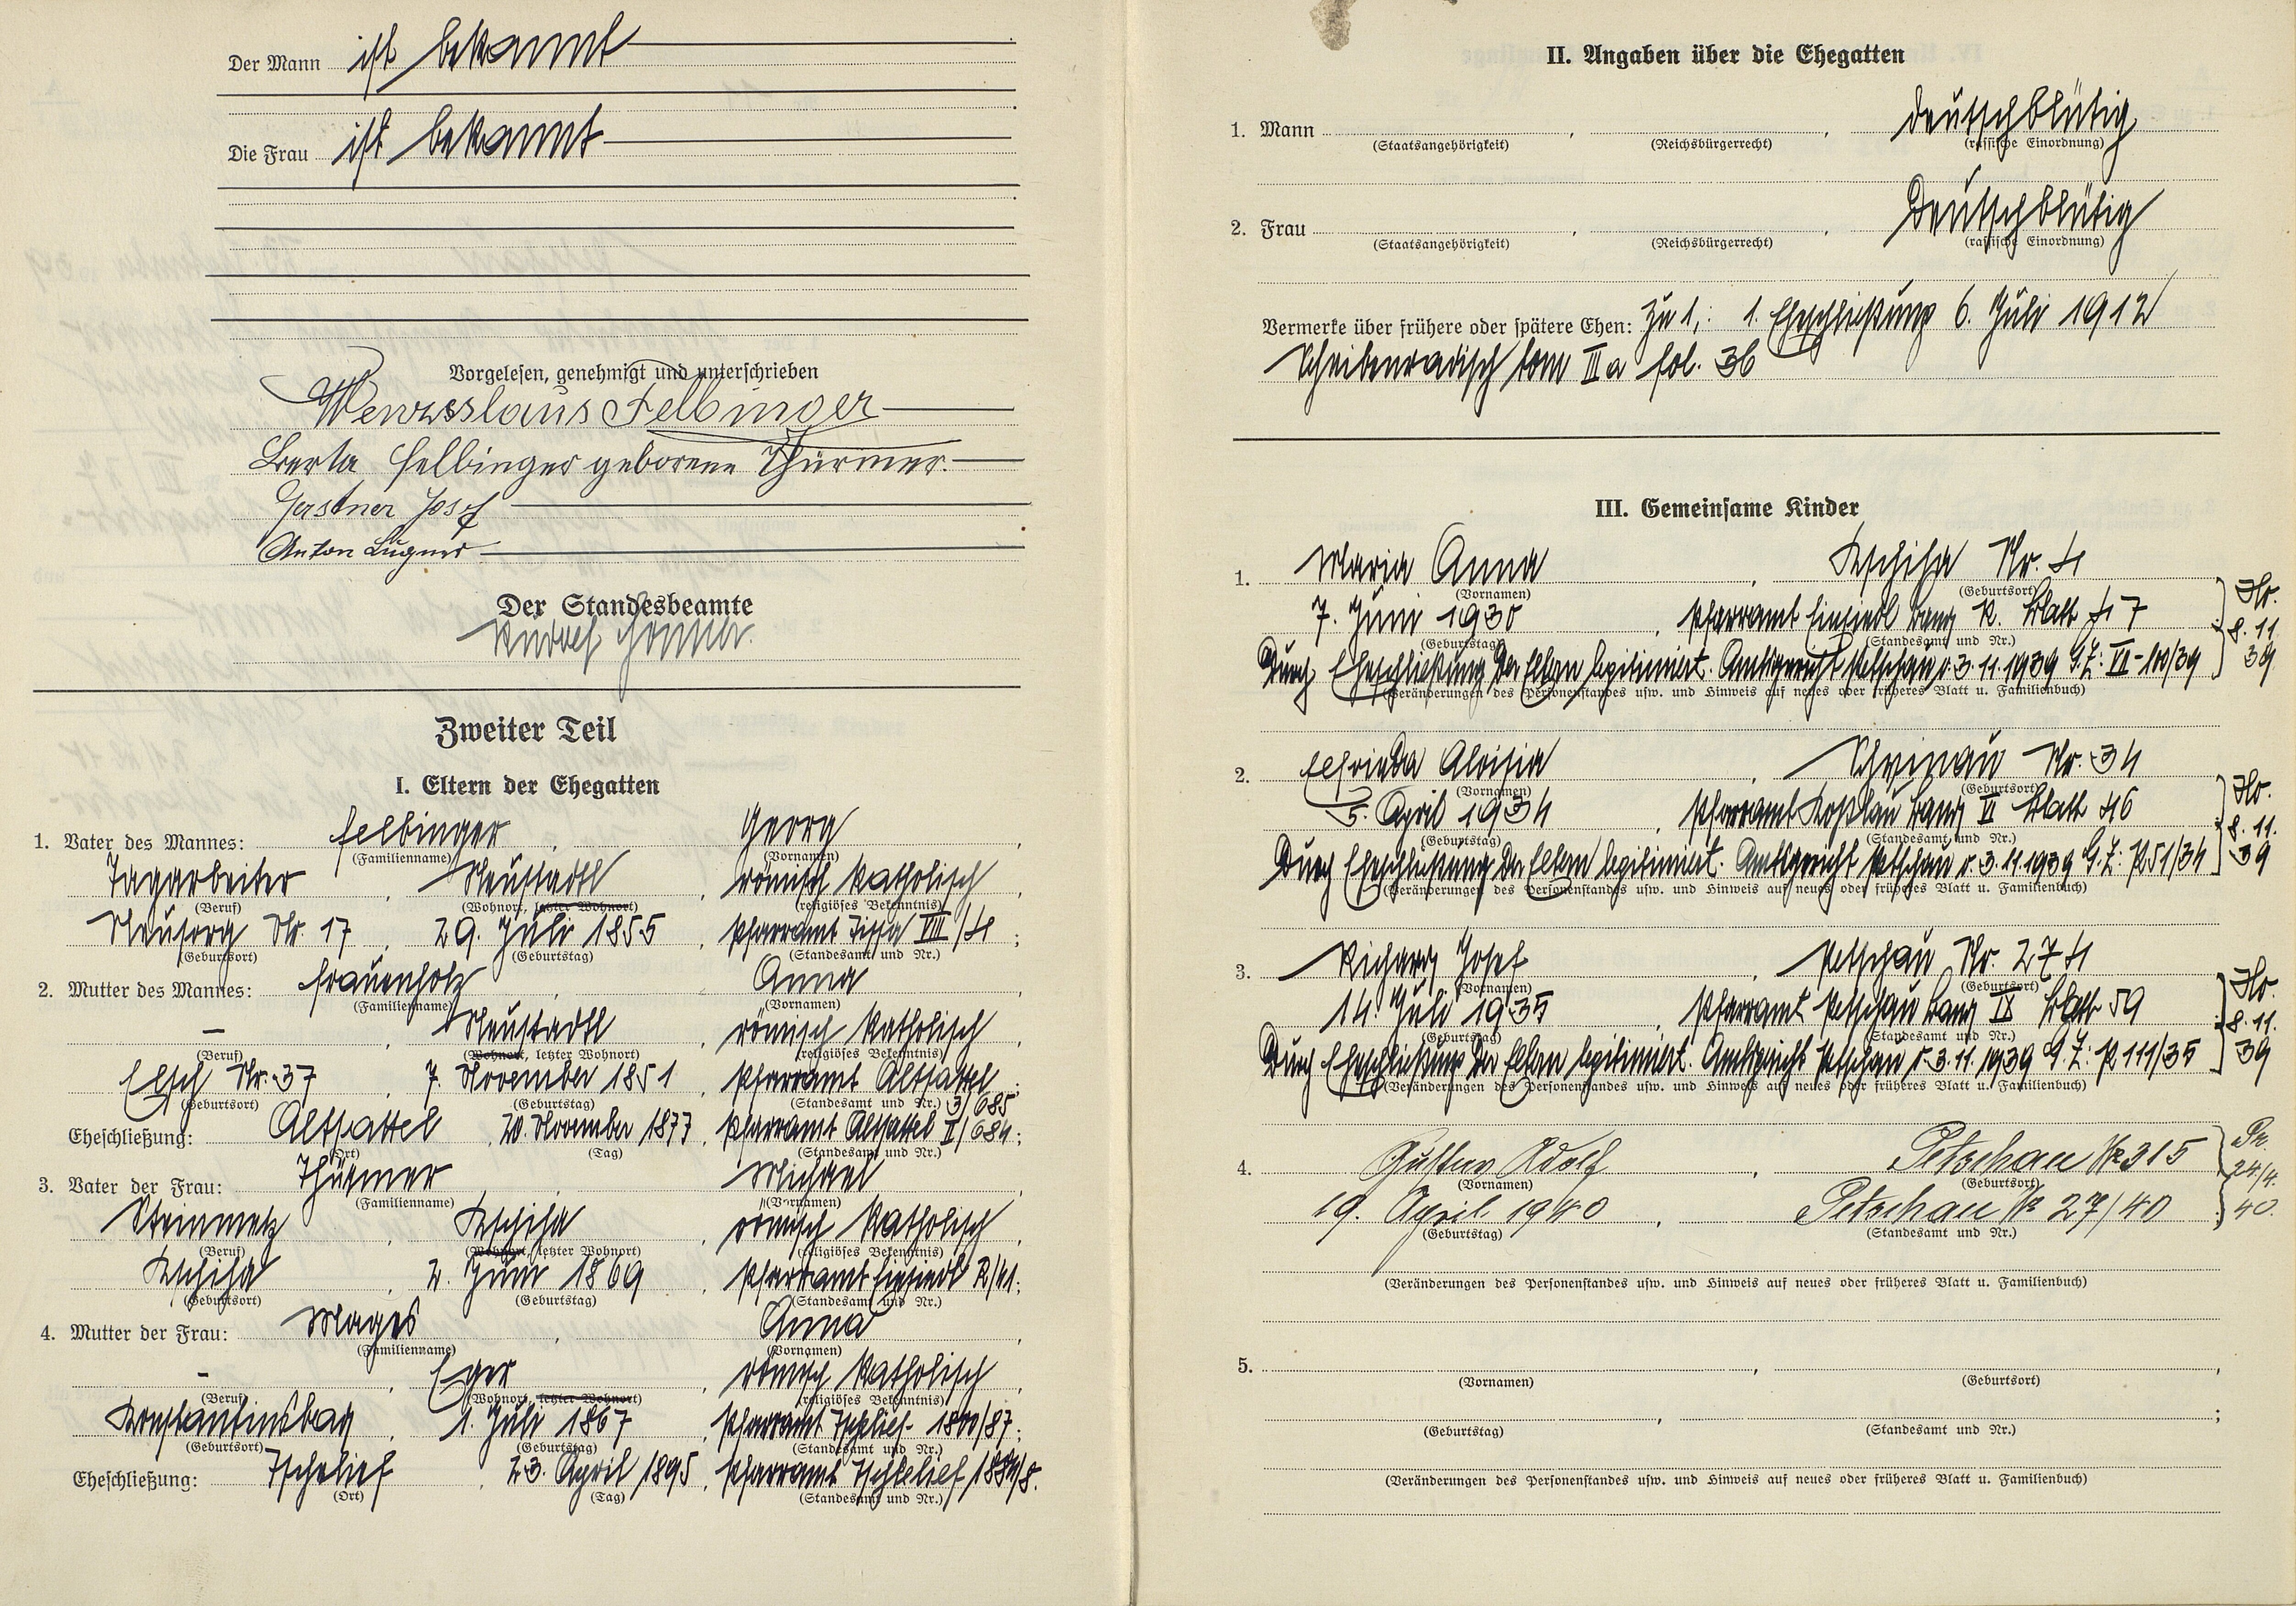 Der Mann ist bekannt
Die Frau ist bekannt
Vorgelesen, genehmigt und unterschrieben
Wenzeslaus Felbinger
Berta Felbinger geborene Thürmer.
Gerstner Josef
Anton Lugner
Der Standesbeamte
Rudolf
Zweiter Teil
I. Eltern der Ehegatten
1. Vater des Mannes: Felbinger, Georg,
(Familienname) (Vornamen)
Tagarbeiter, Neustadtl, römisch katholisch,
(Beruf) (Wohnort, letzter Wohnort) (religiöses Bekenntnis)
Neusorg Nr. 17, 29. Juli 1855, Pfarramt Tissa VIII/4;
(Geburtsort) (Geburtstag) (Standesamt und Nr.)
2. Mutter des Mannes: Frauenholz, Anna,
(Familienname) (Vornamen)
–, Neustadtl, römisch katholisch,
(Beruf) (Wohnort, letzter Wohnort) (religiöses Bekenntnis)
Elsch Nr. 37, 7. November 1851, Pfarramt Altsattel;
(Geburtsort) (Geburtstag) (Standesamt und Nr.) 3/685
Eheschließung: Altsattel, 20. November 1877, Pfarramt Altsattel II/684;
(Ort) (Tag) (Standesamt und Nr.)
3. Vater der Frau: Thürmer, Michael,
(Familienname) (Vornamen)
Steinmetz, Kschiha, römisch katholisch,
(Beruf) (Wohnort, letzter Wohnort) (religiöses Bekenntnis)
Kschiha, 2. Juni 1869, Pfarramt Einsiedl R/41;
(Geburtsort) (Geburtstag) (Standesamt und Nr.)
4. Mutter der Frau: Mages, Anna,
(Familienname) (Vornamen)
–, Eger, römisch katholisch,
(Beruf) (Wohnort, letzter Wohnort) (religiöses Bekenntnis)
Konstantinsbad, 1. Juli 1867, Pfarramt Tschelief 1800/87;
(Geburtsort) (Geburtstag) (Standesamt und Nr.)
Eheschließung: Tschelief, 23. April 1895, Pfarramt Tschelief
(Ort) (Tag) (Standesamt und Nr.)
II. Angaben über die Ehegatten
1. Mann, , deutschblütig
(Staatsangehörigkeit) (Reichsbürgerrecht) (rassische Einordnung)
2. Frau, , Deutschblütig
(Staatsangehörigkeit) (Reichsbürgerrecht) (rassische Einordnung)
Vermerke über frühere oder spätere Ehen: Zu 1,: 1. Eheschließung 6. Juli 1912
Scheibenradisch tom III a fol. 36
III. Gemeinsame Kinder
1. Maria Anna, Kschiha Nr. 4
(Vornamen) (Geburtsort)
7. Juni 1930, Pfarramt Einsiedl Band R. Blatt 47
(Geburtstag) (Standesamt und Nr.)
Durch Eheschließung der Eltern legitimiert. Amtsgericht Petschau v. 3.11.1939 G.Z: VII-100/39
8.11.
39
(Veränderungen des Personenstandes usw. und Hinweis auf neues oder früheres Blatt u. Familienbuch)
2. Elfrieda Aloisia, Schrinau Nr. 34
(Vornamen) (Geburtsort)
5. April 1934, Pfarramt Koßlau Band VI Blatt 46
(Geburtstag) (Standesamt und Nr.)
Durch Eheschließung der Eltern legitimiert. Amtsgericht Petschau v. 3.11.1939 G.Z: P51/34
8.11.
39
(Veränderungen des Personenstandes usw. und Hinweis auf neues oder früheres Blatt u. Familienbuch)
3. Richard Josef, Petschau Nr. 274
(Vornamen) (Geburtsort)
14. Juli 1935, Pfarramt Petschau Band IX Blatt 59
(Geburtstag) (Standesamt und Nr.)
Durch Eheschließung der Eltern legitimiert. Amtsgericht Petschau v. 3.11.1939 G.Z: P 111/35
8.11.
39
(Veränderungen des Personenstandes usw. und Hinweis auf neues oder früheres Blatt u. Familienbuch)
4. Gustav Adolf, Petschau Nr 315
(Vornamen) (Geburtsort)
19. April 1940, Petschau Nr 27/40
(Geburtstag) (Standesamt und Nr.)
24/4.
40.
(Veränderungen des Personenstandes usw. und Hinweis auf neues oder früheres Blatt u. Familienbuch)
5. , ,
(Vornamen) (Geburtsort)
, ;
(Geburtstag) (Standesamt und Nr.)
(Veränderungen des Personenstandes usw. und Hinweis auf neues oder früheres Blatt u. Familienbuch)